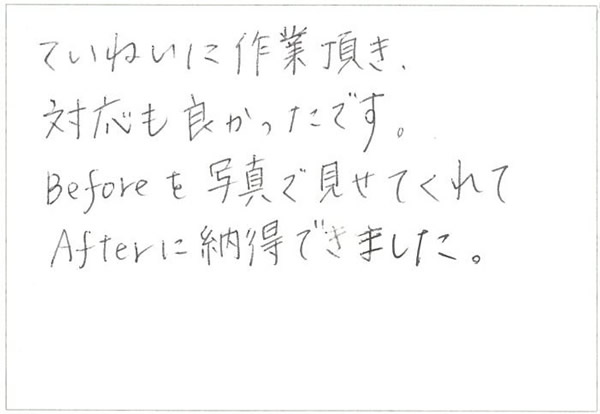 ていねいに作業頂き、
対応も良かったです。
Beforeを写真で見せてくれて
Afterに納得できました。